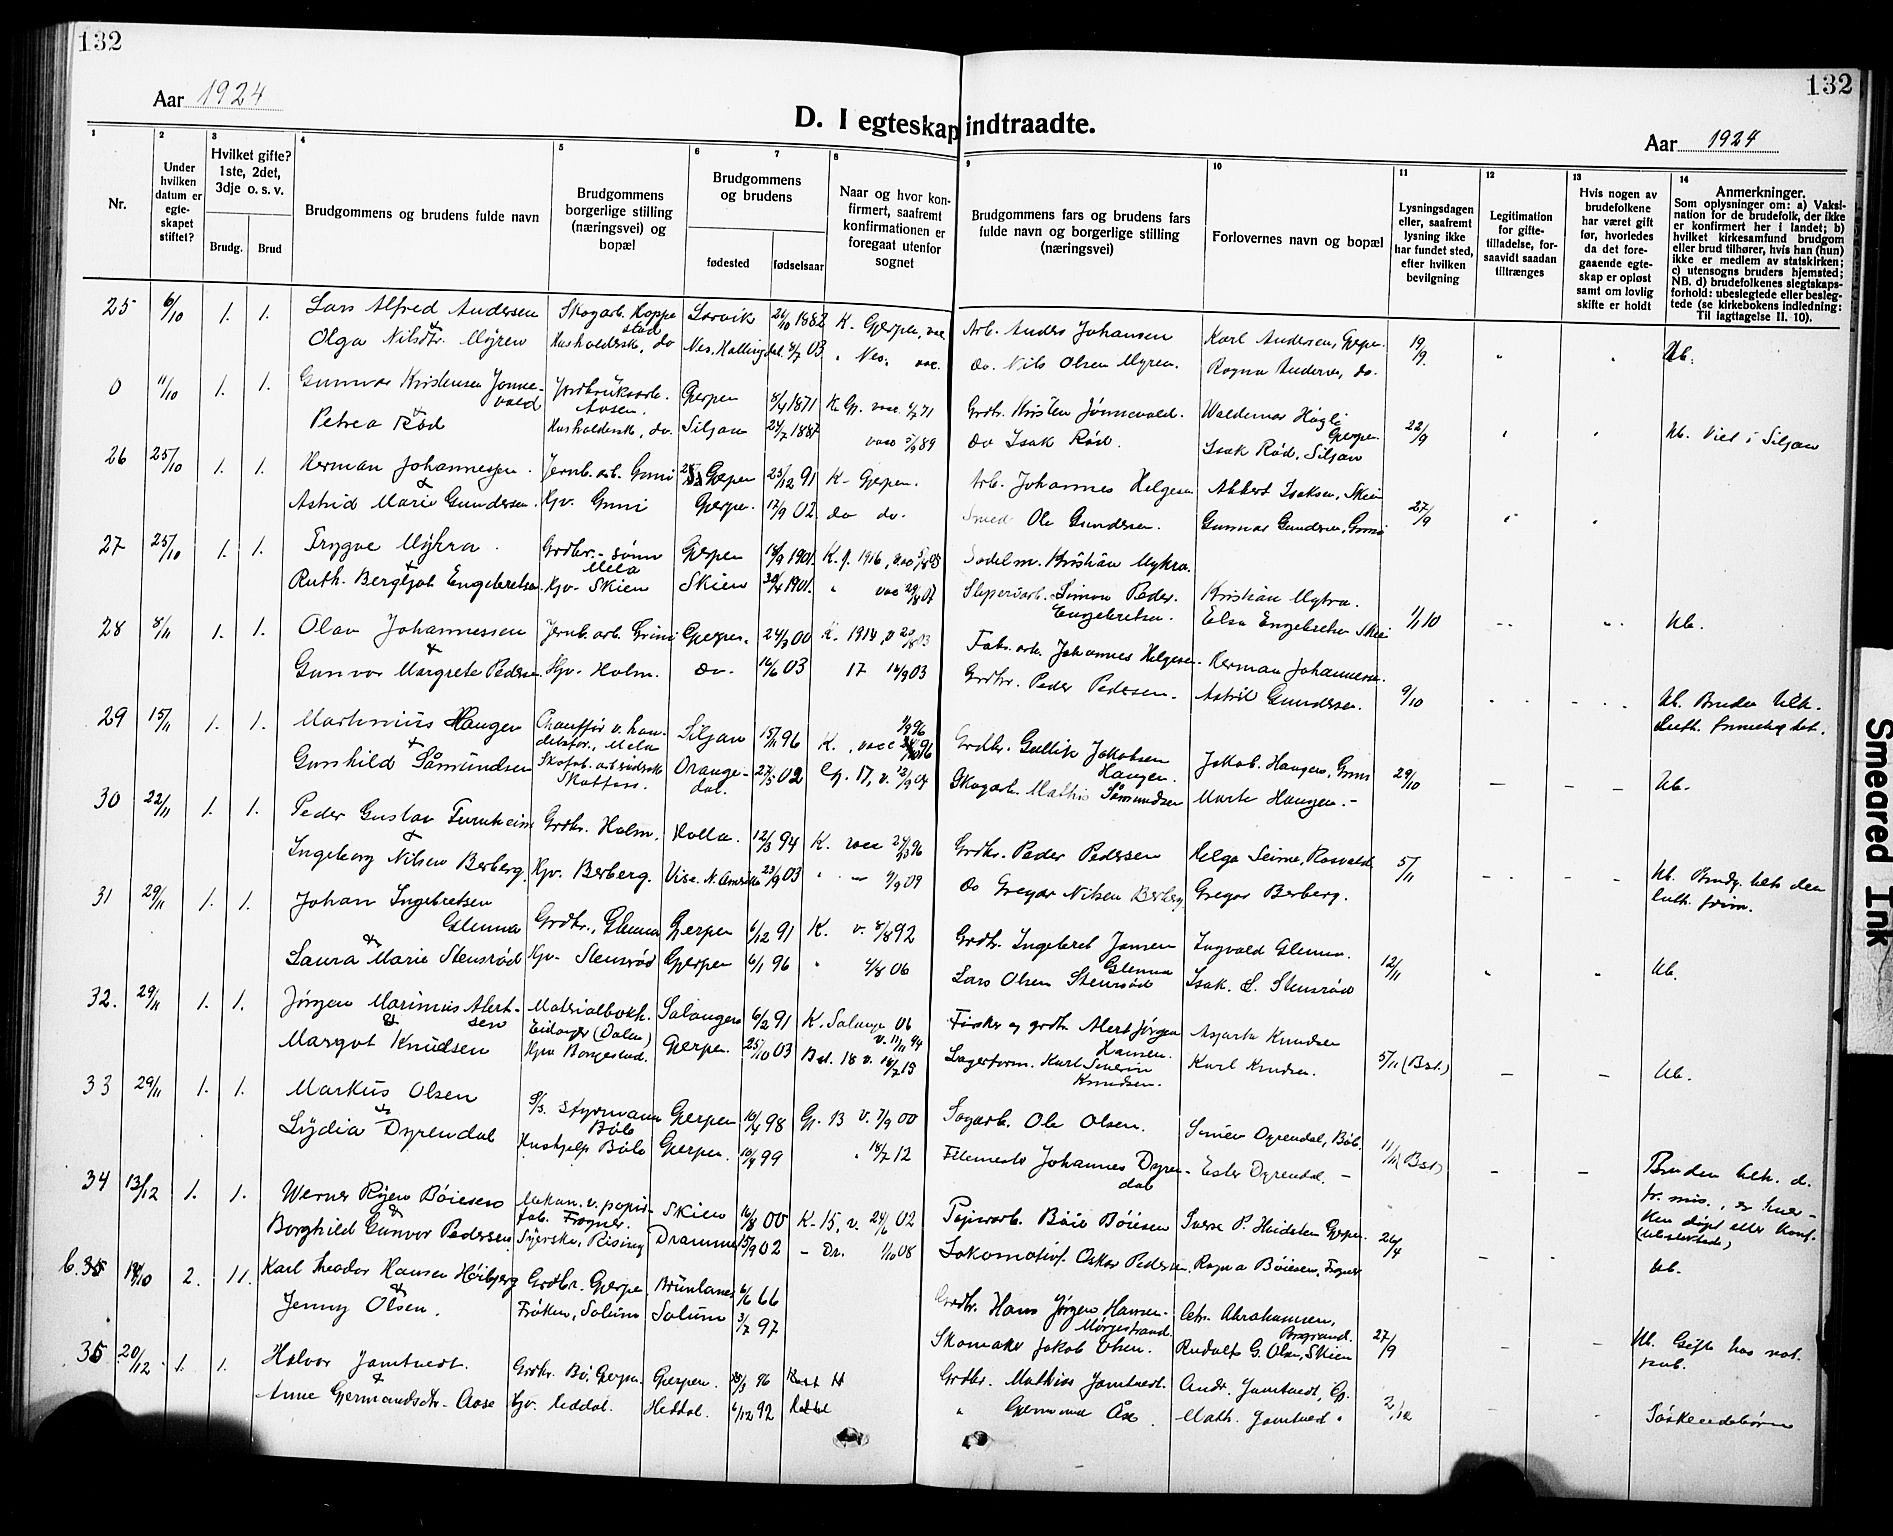 132
132
Aar 1924
D. I egteskap indtraadte.
Aar 1924
1
2
3
4
5
6
7
8
9
10
11
12
13
14
Nr.
Under hvilken datum er egteskapet stiftet?
Hvilket gifte? 1ste, 2det, 3dje o. s. v.
Brudg.
Brud
Brudgommens og brudens fulde navn
Brudgommens borgerlige stilling (næringsvei) og bopæl
Brudgommens og brudens
fødested
fødselsaar
Naar og hvor konfirmert, saafremt konfirmationen er foregaat utenfor sognet
Brudgommens fars og brudens fars fulde navn og borgerlige stilling (næringsvei)
Forlovernes navn og bopæl
Lysningsdagen eller, saafremt lysning ikke har fundet sted, efter hvilken bevilgning
Legitimation for giftetilladelse, forsaavidt saadan tiltrænges
Hvis nogen av brudefolkene har været gift før, hvorledes da det foregaaende egteskap er opløst samt om lovlig skifte er holdt
Anmerkninger.
Som oplysninger om: a) Vaksination for de brudefolk, der ikke er konfirmert her i landet; b) hvilket kirkesamfund brudgom eller brud tilhører, hvis han (hun) ikke er medlem av statskirken; c) utensogns bruders hjemsted; NB. d) brudefolkenes slegtskapsforhold: ubeslegtede eller beslegtede (se kirkebokens indledning: Til iagttagelse II. 10).
25 6/10 1. 1. Lars Alfred Andersen Larvik 1882 K. Gjerpen, vac. Arb. Anders Johansen Karl Andersen, Gjerpen. 19/9. Ub.
& Olga Nilsdtr. Myren Husholdersk, do Nes, Hallingdal 03 " Nes. vac. do. Nils Olsen Myren. Ragna Andersen, do.
0 11/10 1. 1. Gunnar Kristensen Jønnevald Jordbruksarb. Aasen. Gjerpen 8/4 1871 K. Gp. vac. 71 Grdbr. Kristen Jønnevald. Waldemar Høgli Gjerpen. 22/9 Ub. Viet i Siljan
& Petrea Rød Husholdersk, do. Siljan 1887 vacc 89 do Isak Rød. Isak Rød, Siljan
26 25/10 1. 1. Herman Johannessen. Jernb. arb. Grini Gjerpen 25/12 91 K. Gjerpen. Arb. Johannes Helgesen Albert Isaksen, Skien 27/9
& Astrid Marie Gundersen. Hjv. Grini Gjerpen. 17/9 02 do do. Smed Ole Gundersen. Gunnar Gundersen, Grini
27 25/10 1. 1. Trygve Mykra. Grdbr.- sønn Mela Gjerpen 1901. K. g. 1916, vac Sadelm. Kristian Mykra. Kristian Mykra. 1/10 Ub.
& Ruth Bergljot Engebretsen. Hjv. Skien Skien 1901. " vac 07 Sliperiarb. Simon Peder Engebretsen. Elsa Engebretsen Skien
28 8/11 1. 1. Olav Johannessen Jernb. arb. Grini Gjerpen. 00 K. 1914, Fabr. arb. Johannes Helgesen. Herman Johannessen. 9/10 Ub. Bruden tilh. luth. frimenighet.
& Gunvor Margrete Pedersen. Hjv. Holm. do. 16/6 03 17 03 Grdbr. Peder Pedersen. Astrid Gundersen.
29 15/11 1. 1. Martinius Haugen Chauffør v. handelsfor., Mela Siljan 15/11 96 K. , vacc 96 Grdbr. Gullik Jakobsen Haugen. Jakob. Haugen, Grini 29/10 Ub.
& Gunhild Såmundsen Skofab. arbeiderske Skotfoss. Drangedal. 27/5 02 Gj. 17, v. Skogarb. Mathis Såmundsen Marte Haugen.
30 22/11 1. 1. Peder Gustav Furuheim Grdbr. Holm. Holla. 12/3 94 K. vacc 96 Grdbr. Peder Pedersen Helga Seime, 5/11 Ub. Brudg. tilh. den luth. frim.
& Ingeborg Nilsen Berberg. Hjv. Berberg. Visc. N. Amerika 23/9 03 9/9 09 do Gregar Nilsen Berberg Gregar Berberg.
31 29/11 1. 1. Johan Ingebretsen Glenna Grdbr., Glenna Gjerpen 6/12 91 K. v. 8/8 92 Grdbr. Ingebret Jansen Glenna Ingvald Glenna. 12/11 Ub.
& Laura Marie Stensrød Hjv. Stensrød Gjerpen 6/1 96 " 4/8 06 Lars Olsen Stensrød Isak. L. Stensrød
32. 29/11 1. 1. Jørgen Marinius Alertsen Materialbokh. Eidanger (Dalen) Salangen 6/2 91 K. Salangen 06 v. 11/11 94 Fisker og grdbr. Alert Jørgen Hansen. Knudsen 5/11 (Bst.) Ub.
& Margot Knudsen Hjv. Borgestad. Gjerpen. 25/10 03 Bst. 18 v. 15 Lagerform. Karl Severin Knudsen. Karl Knudsen.
33 29/11 1. 1. Markus Olsen D/S. styrmann Bøle Gjerpen 98 Gp. 13 v. 7/9 00 Sagarb. Ole Olsen. Dyrendal, Bøle. 11/11 (Bst) Bruden tilh. d. fr. mis., er hverken døpt eller konf. (ubeslektede)
& Lydia Dyrendal Hushjelp Bøle Gjerpen. 99 " 12 Johannes Dyrendal Ester Dyrendal.
34 13/12 1. 1. Werner Rijen Bøiesen Mekan. v. papirfab. Frogner. Skien 16/8 00 K. 15, v. 24/6 02 Papirarb. Bøie Bøiesen Sverre P. Heidsten Gjerpen. 26/4 Ub.
& Borghild Gunvor Pedersen. Syerske, Rising Drammen 15/9 02 - Dr. 08 Lokomotivf. Oskar Pedersen. Ragna Bøiesen, Frogner
b. 35 18/10 2. 11. Karl Theodor Hansen Høibjerg Grdbr. Gjerpen Brunlanes 6/6 66 Grdbr. Hans Jørgen Hansen. Chr. Abrahamsen, Porsgrund. 27/9 Ub. Gifte hos not. pub.
& Jenny Olsen. Frøken, Solum Solum 3/7 97 Skomaker Jakob Olsen. Rudolf G. Olsen, Skien
35 20/12 1. 1. Halvor Jamtvedt. Grdbr. Bø, Gjerpen. Gjerpen. 96 Grdbr. Mathias Jamtvedt. Andr. Jamtvedt, Gp. 2/12 Søskendebørn
& Anne Gjermundsdtr. Aase Hjv. Heddal. Heddal. 6/12 92 Heddal " Gjermund Åse. Math. Jamtvedt "
Smeared Ink